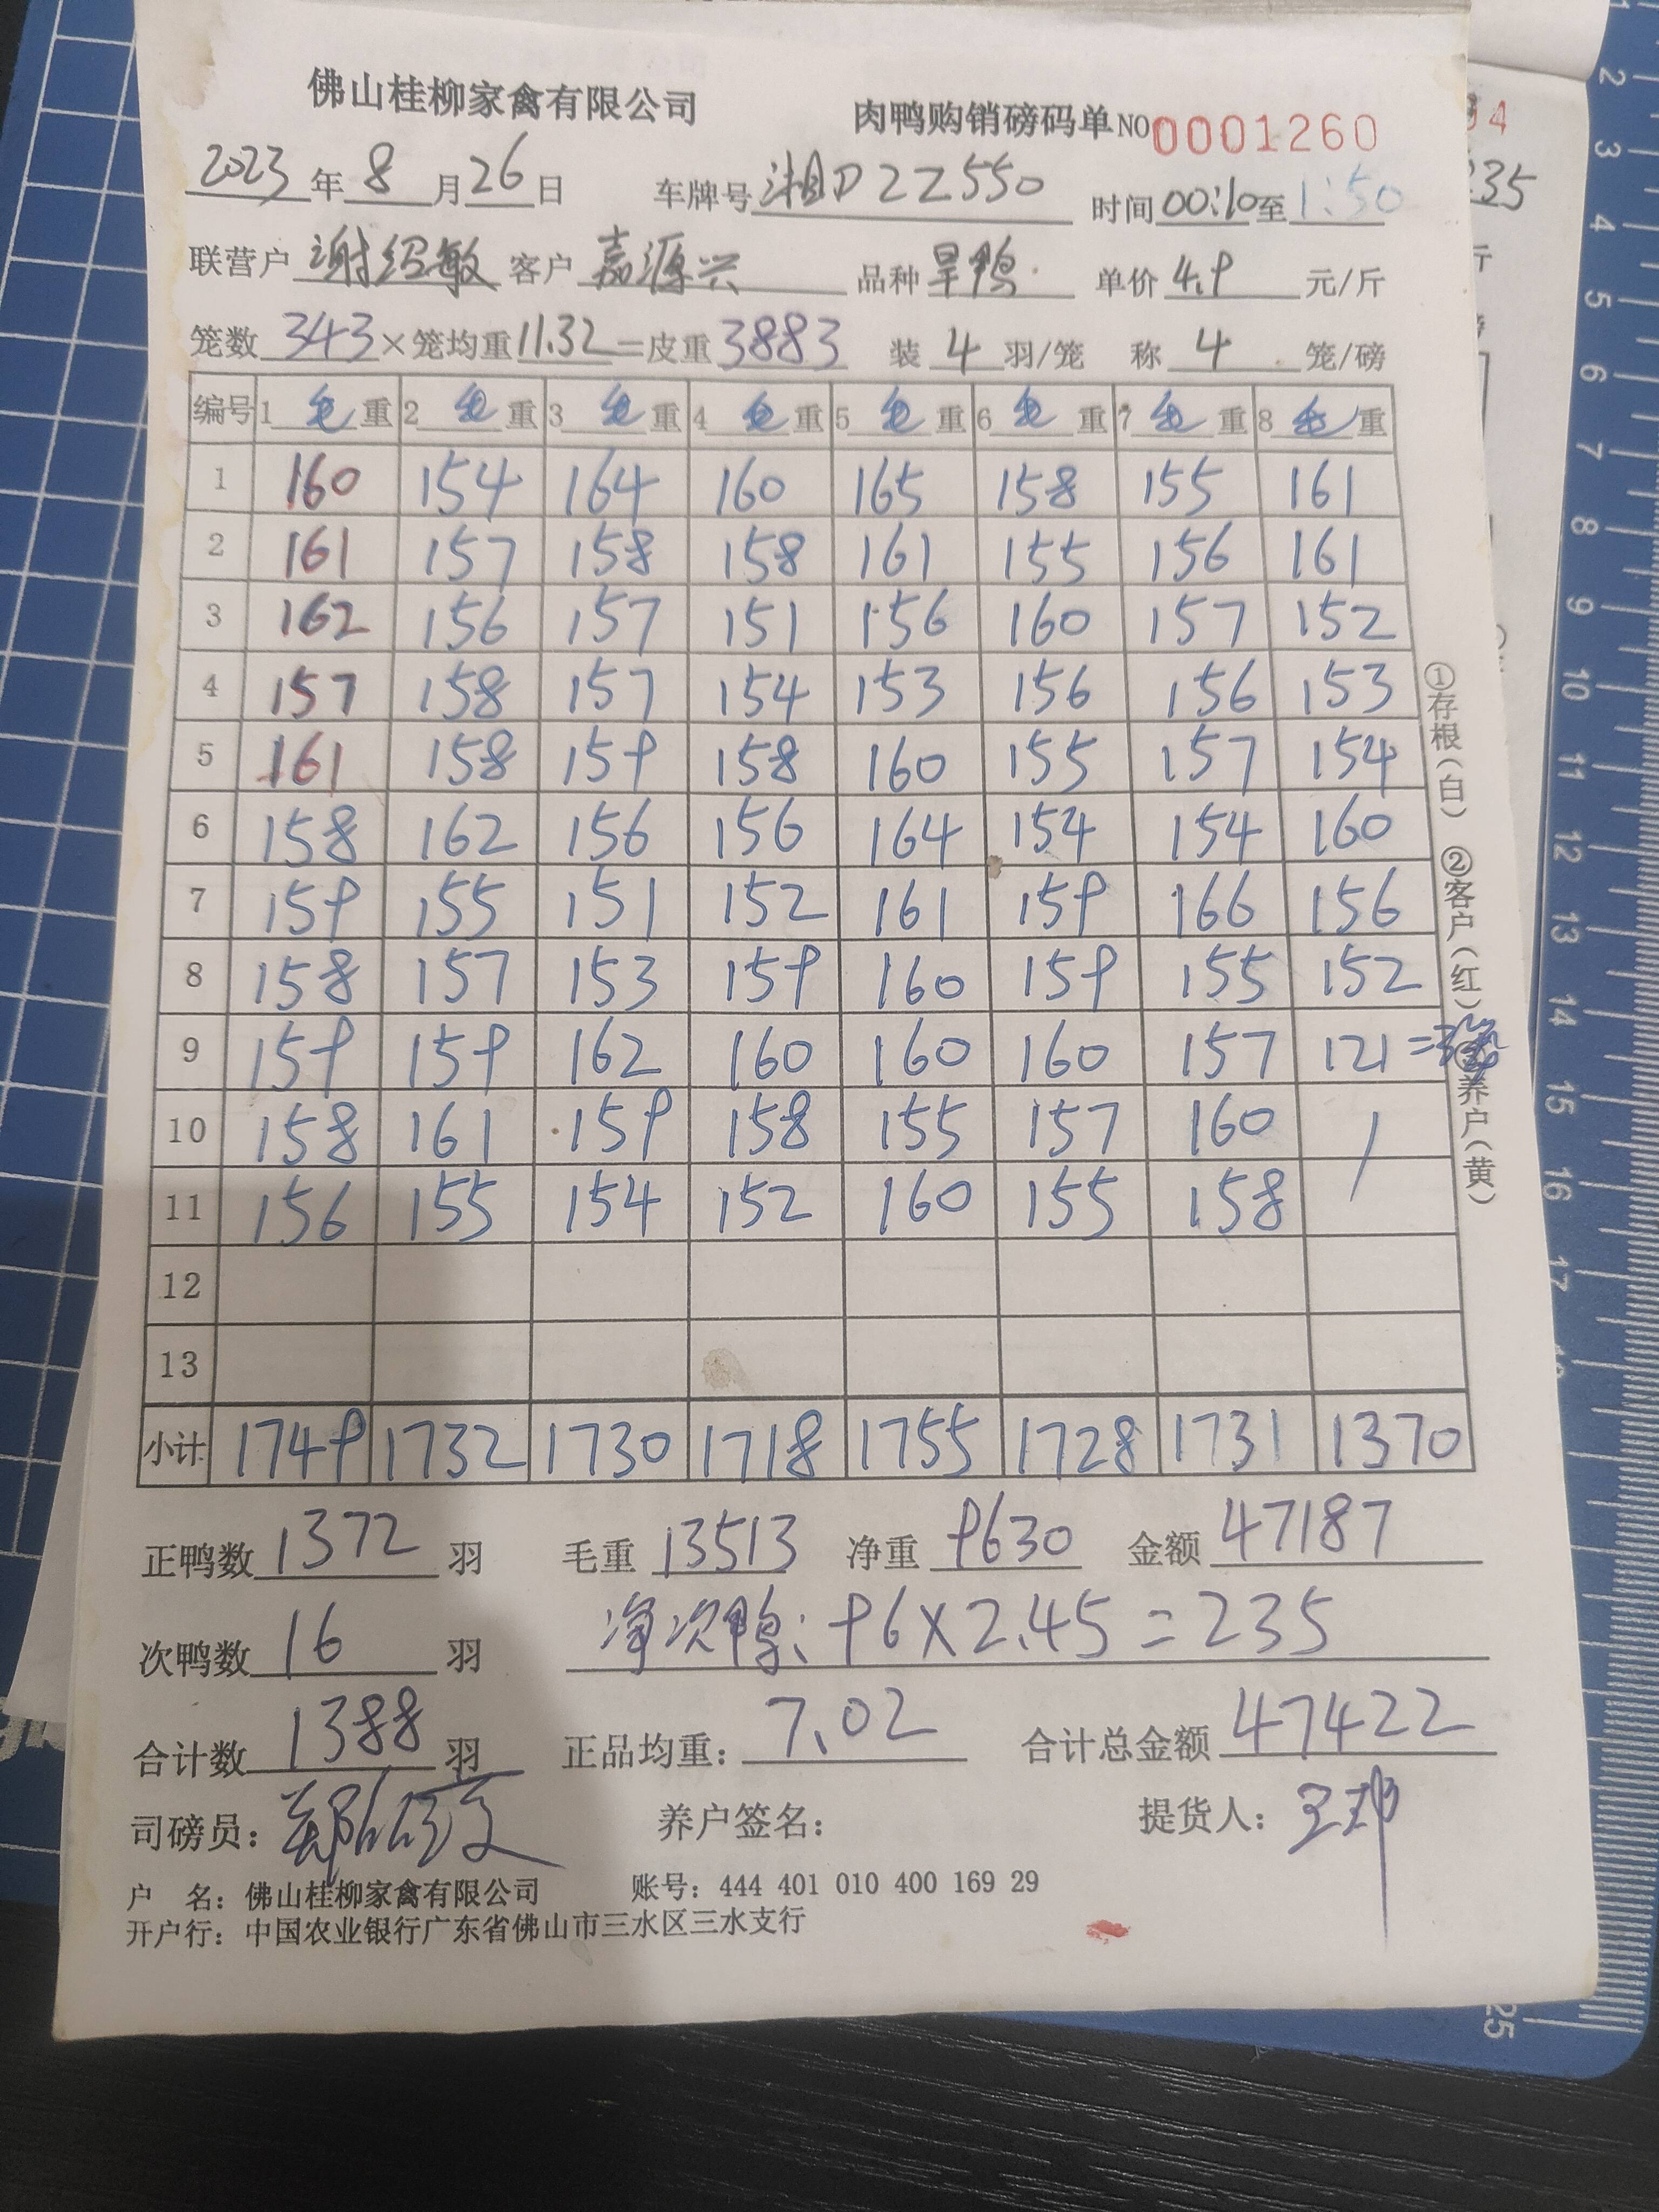 佛山桂柳家禽有限公司 肉鸭购销磅码单 NO 0001260
2023年8月26日 车牌号 湘D2Z550 时间 00:10至1:50
联营户 谢绍敏 客户 嘉源兴 品种 旱鸭 单价 4.9 元/斤
笼数 343×笼均重 11.32=皮重 3883 装 4 羽/笼 称 4 笼/磅
编号 1 毛重 2 毛重 3 毛重 4 毛重 5 毛重 6 毛重 7 毛重 8 毛重
1 160 154 164 160 165 158 155 161
2 161 157 158 158 161 155 156 161
3 162 156 157 151 156 160 157 152
4 157 158 157 154 153 156 156 153
5 161 158 159 158 160 155 157 154
6 158 162 156 156 164 154 154 160
7 159 155 151 152 161 159 166 156
8 158 157 153 159 160 159 155 152
9 159 159 162 160 160 160 157 121
10 158 161 159 158 155 157 160 /
11 156 155 154 152 160 155 158
12
13
小计 1749 1732 1730 1718 1755 1728 1731 1370
正鸭数 1372 羽 毛重 13513 净重 9630 金额 47187
次鸭数 16 羽 净次鸭: 96×2.45=235
合计数 1388 羽 正品均重: 7.02 合计总金额 47422
司磅员: 养户签名: 提货人:
户 名: 佛山桂柳家禽有限公司 账号: 444 401 010 400 169 29
开户行: 中国农业银行广东省佛山市三水区三水支行
①存根(白) ②客户(红) ③养户(黄)
94
235
斤
2
3
4
5
6
7
8
9
10
11
12
13
14
15
16
17
25